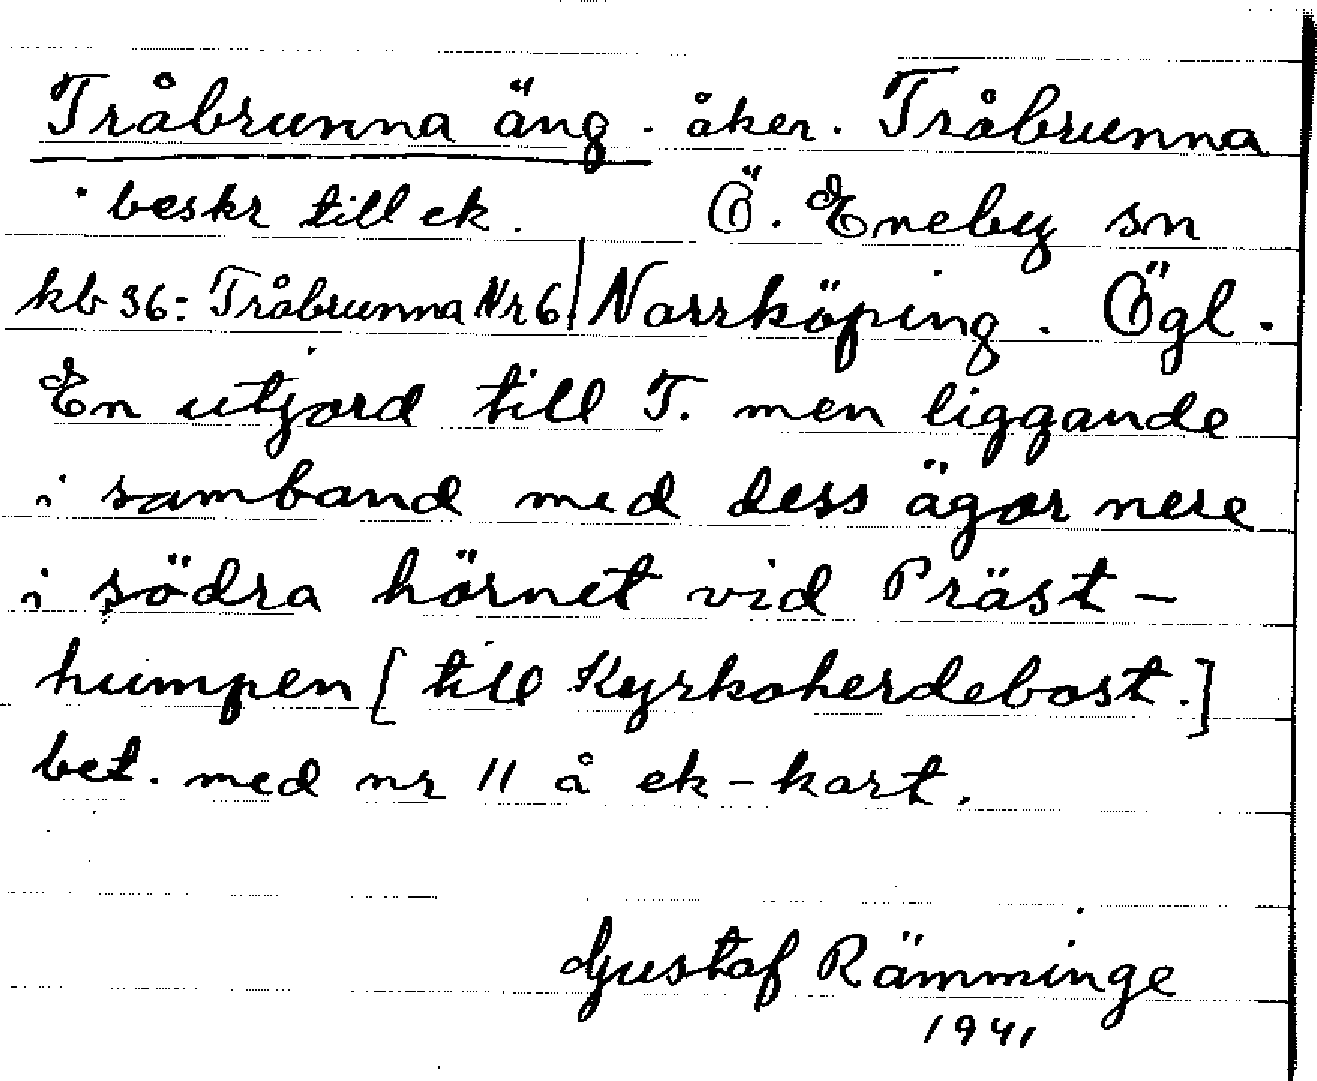 Tråbrunna äng. åker. Tråbrunna
i beskr till ek. Ö. Eneby sn
kb 36: Tråbrunna Nr 6 Norrköping. Ögl.
En utjord till T. men liggande
i samband med dess ägor nere
i södra hörnet vid Präst-
humpen [till Kyrkoherdebost.]
bet. med nr 11 å ek-kart.
Gustaf Rämminge
1941